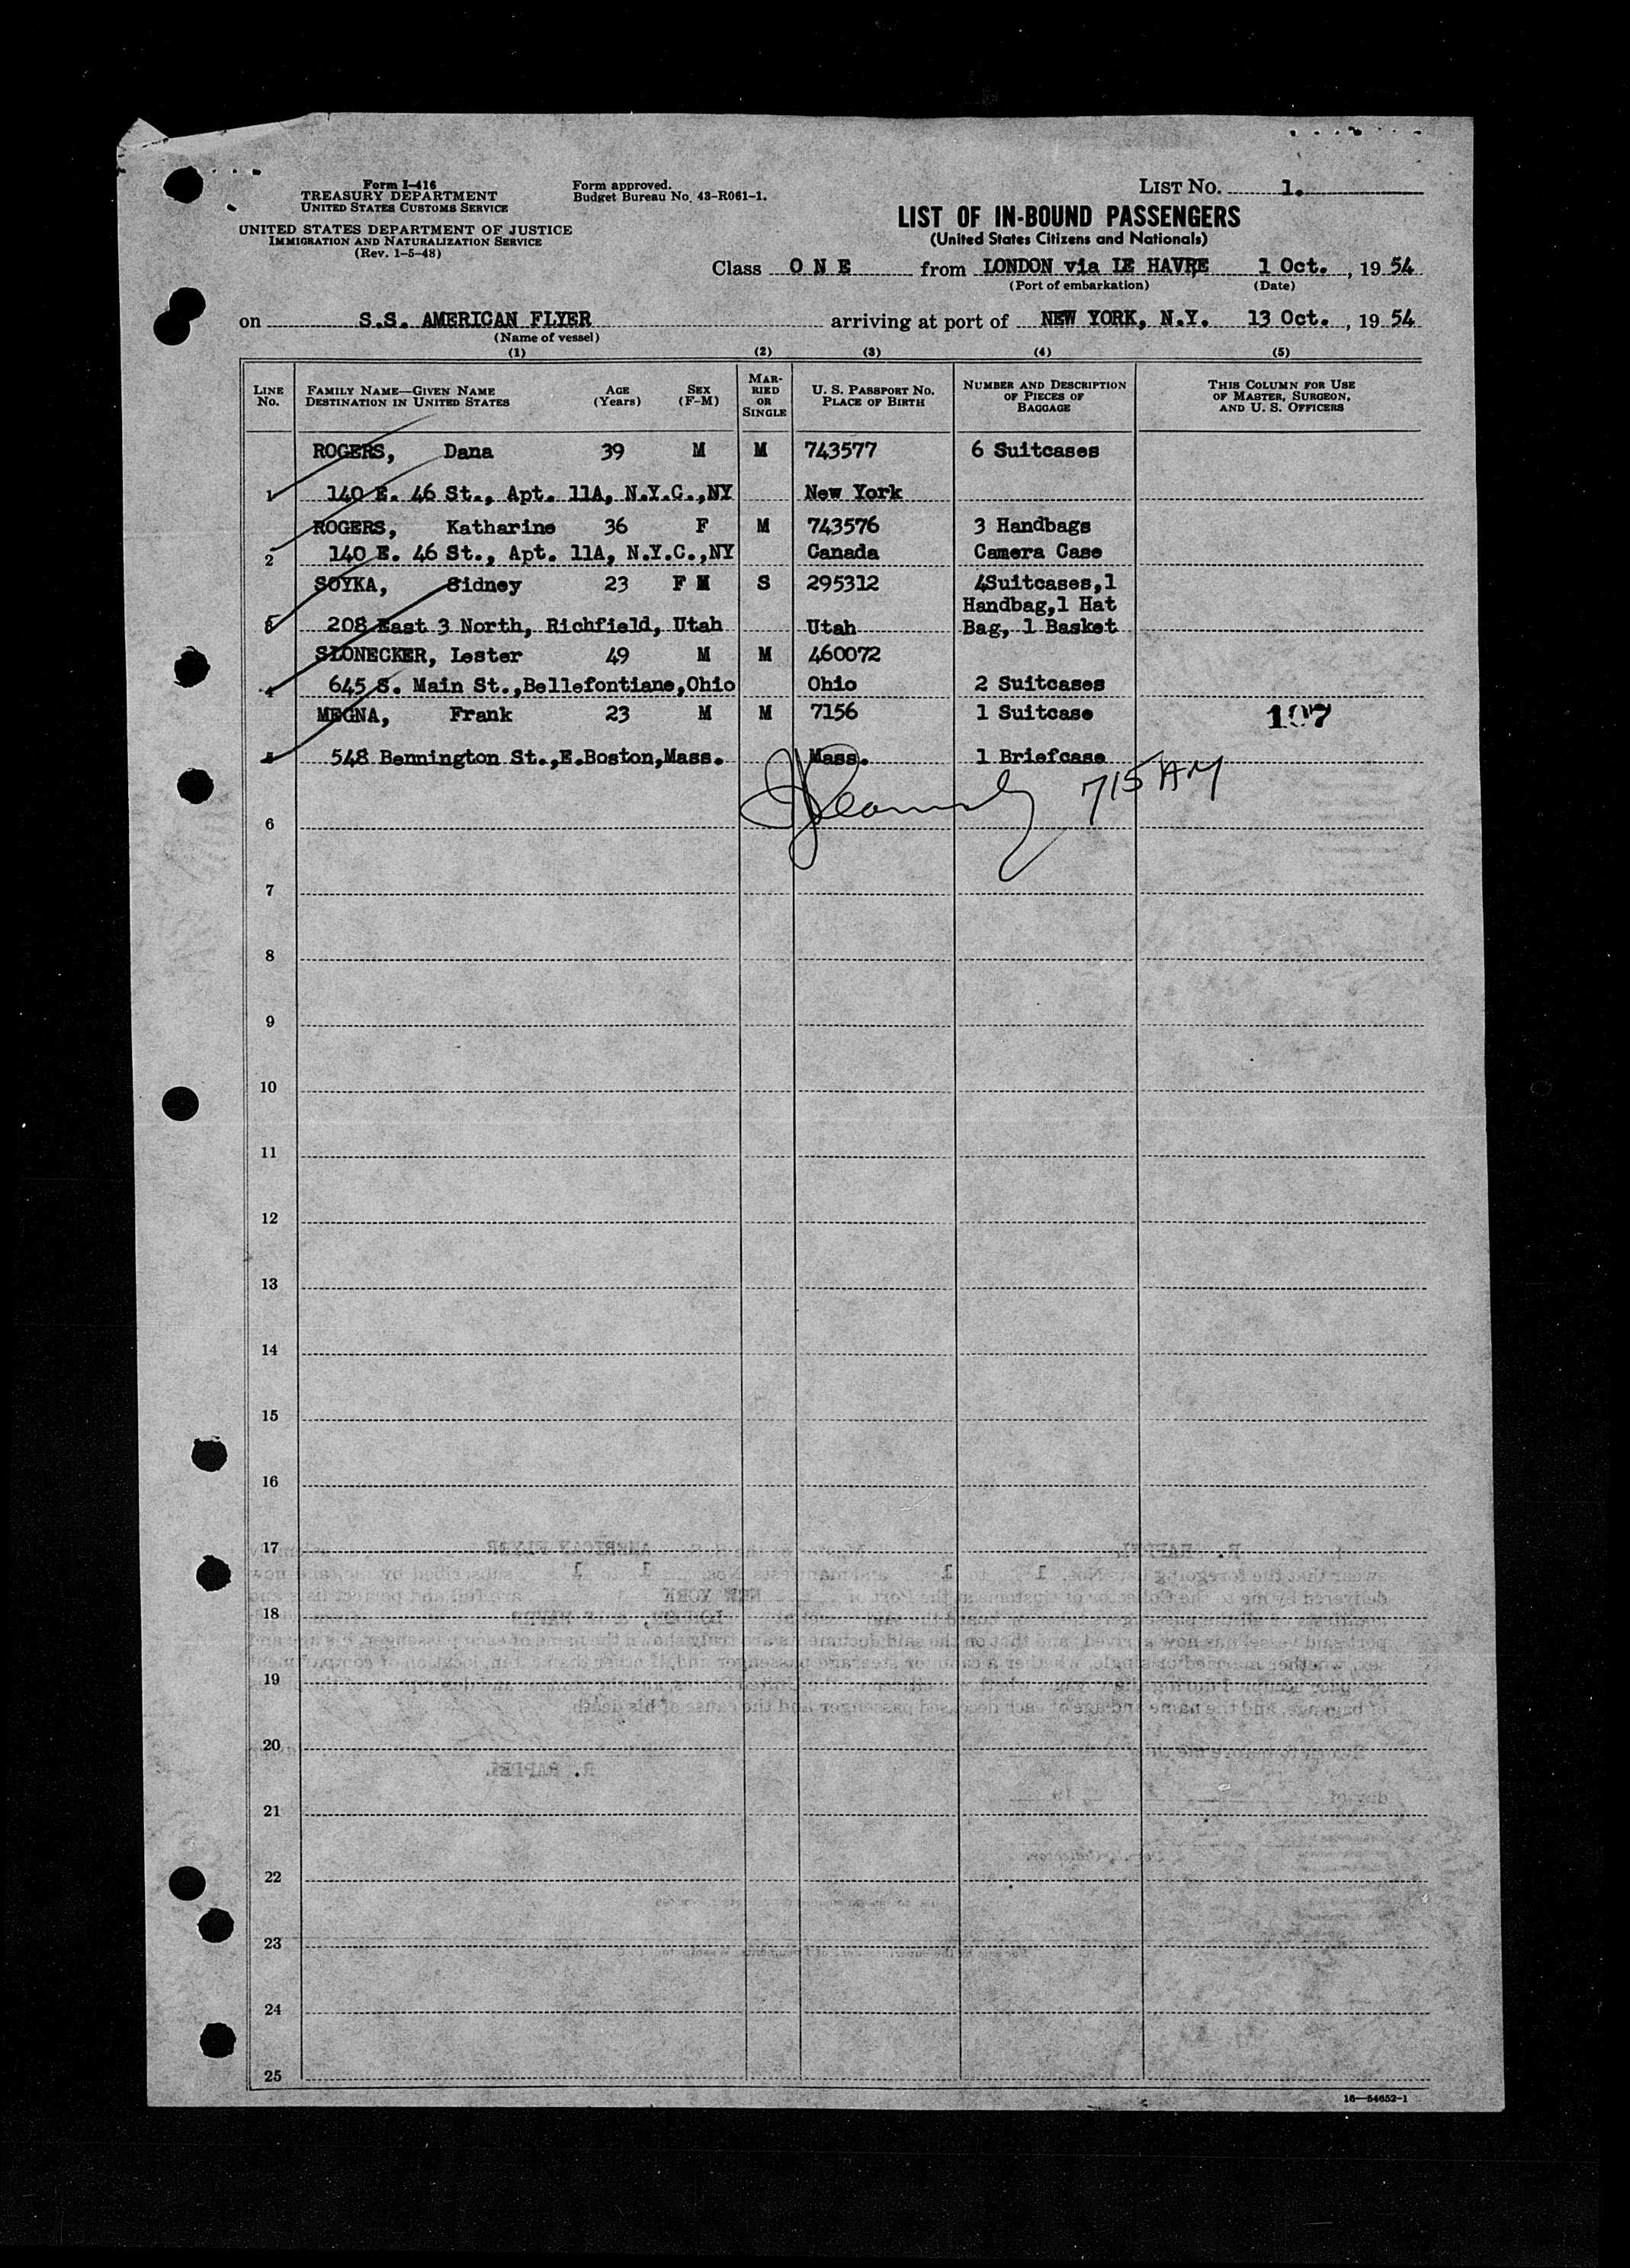 Form I-416
TREASURY DEPARTMENT
UNITED STATES CUSTOMS SERVICE
UNITED STATES DEPARTMENT OF JUSTICE
IMMIGRATION AND NATURALIZATION SERVICE
(Rev. 1-5-48)
Form approved.
Budget Bureau No. 43-R061-1.
LIST NO. 1.
LIST OF IN-BOUND PASSENGERS
(United States Citizens and Nationals)
Class O N E from LONDON via LE HAVRE 1 Oct. , 19 54
(Port of embarkation) (Date)
on S.S. AMERICAN FLYER arriving at port of NEW YORK, N.Y. 13 Oct. , 19 54
(Name of vessel)
(1) (2) (3) (4) (5)
LINE No. FAMILY NAME—GIVEN NAME DESTINATION IN UNITED STATES AGE (Years) SEX (F-M) MARRIED OR SINGLE U. S. PASSPORT NO. PLACE OF BIRTH NUMBER AND DESCRIPTION OF PIECES OF BAGGAGE THIS COLUMN FOR USE OF MASTER, SURGEON, AND U. S. OFFICERS
ROGERS, Dana 39 M M 743577 6 Suitcases
1 140 E. 46 St., Apt. 11A, N.Y.C.,NY New York
ROGERS, Katharine 36 F M 743576 3 Handbags
2 140 E. 46 St., Apt. 11A, N.Y.C.,NY Canada Camera Case
SOYKA, Sidney 23 F M S 295312 4Suitcases,1
Handbag,1 Hat
3 208 East 3 North, Richfield, Utah Utah Bag, 1 Basket
SLONECKER, Lester 49 M M 460072
4 645 S. Main St.,Bellefontiane,Ohio Ohio 2 Suitcases
MEGNA, Frank 23 M M 7156 1 Suitcase 107
5 548 Bennington St.,E.Boston,Mass. Mass. 1 Briefcase
715 AM
6
7
8
9
10
11
12
13
14
15
16
17
18
19
20
21
22
23
24
25
16—54652-1